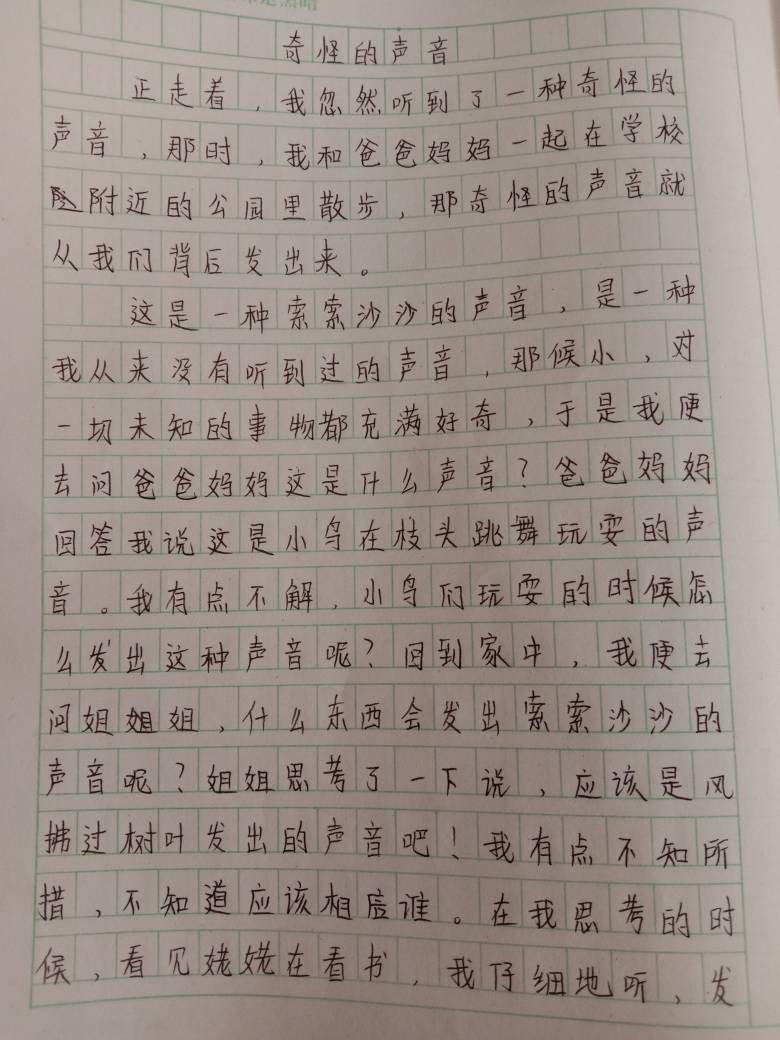 奇怪的声音
正走着，我忽然听到了一种奇怪的
声音，那时，我和爸爸妈妈一起在学校
附近的公园里散步，那奇怪的声音就
从我们背后发出来。
这是一种索索沙沙的声音，是一种
我从来没有听到过的声音，那候小，对
一切未知的事物都充满好奇，于是我便
去问爸爸妈妈这是什么声音？爸爸妈妈
回答我说这是小鸟在枝头跳舞玩耍的声
音。我有点不解，小鸟们玩耍的时候怎
么发出这种声音呢？回到家中，我便去
问姐姐姐，什么东西会发出索索沙沙的
声音呢？姐姐思考了一下说，应该是风
拂过树叶发出的声音吧！我有点不知所
措，不知道应该相应谁。在我思考的时
候，看见姥姥在看书，我仔细地听，发